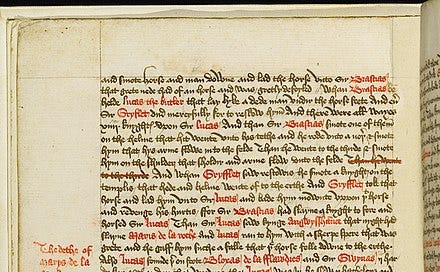 and smote horse and man downe and lad the horse vnto Sir Brastias
that grete nede had of an horse and was gretly defoyled Whan Brastias be
helde Lucas the butler that lay lyke a dede man vndir the horse feete And eu
Sir Gryflet dud mercyfully for to rescow hym And there were all wayes
xiiij knyghtes vppon Sir Lucas And than Sir Brastias smote one of them
on the helme that hit wente vnto his tethe and he rode vnto a noþer & smote
hym that hys arme flowe in to the felde Than he wente to the thirde & smote
hym on the shulder that sholdir and arme flow vnto the felde Than he wente
to the thirde And Whan Gryfflet saw rescowis he smote a knyght on the
templis that hede and helme wente of to the erthe and Gryfflet toke that
horse and lad hym vnto Sir Lucas and bade hym mownte vppon þt horse
and revenge his hurtis for Sir Brastias had slayne a knyght to fore and
horsed Sir Lucas Than Sir Lucas sawe kynge Angwysshaunce that nyght had
slayne Marys de la roche and Lucas ran to hym with a sharpe spere that was
grete and he gaff hym suche a falle that þe horse felle downe to the erthe
Also Lucas founde þer on foote Bloyas de la flaundres and Sir Gwynas
The dethe of
Marys de la